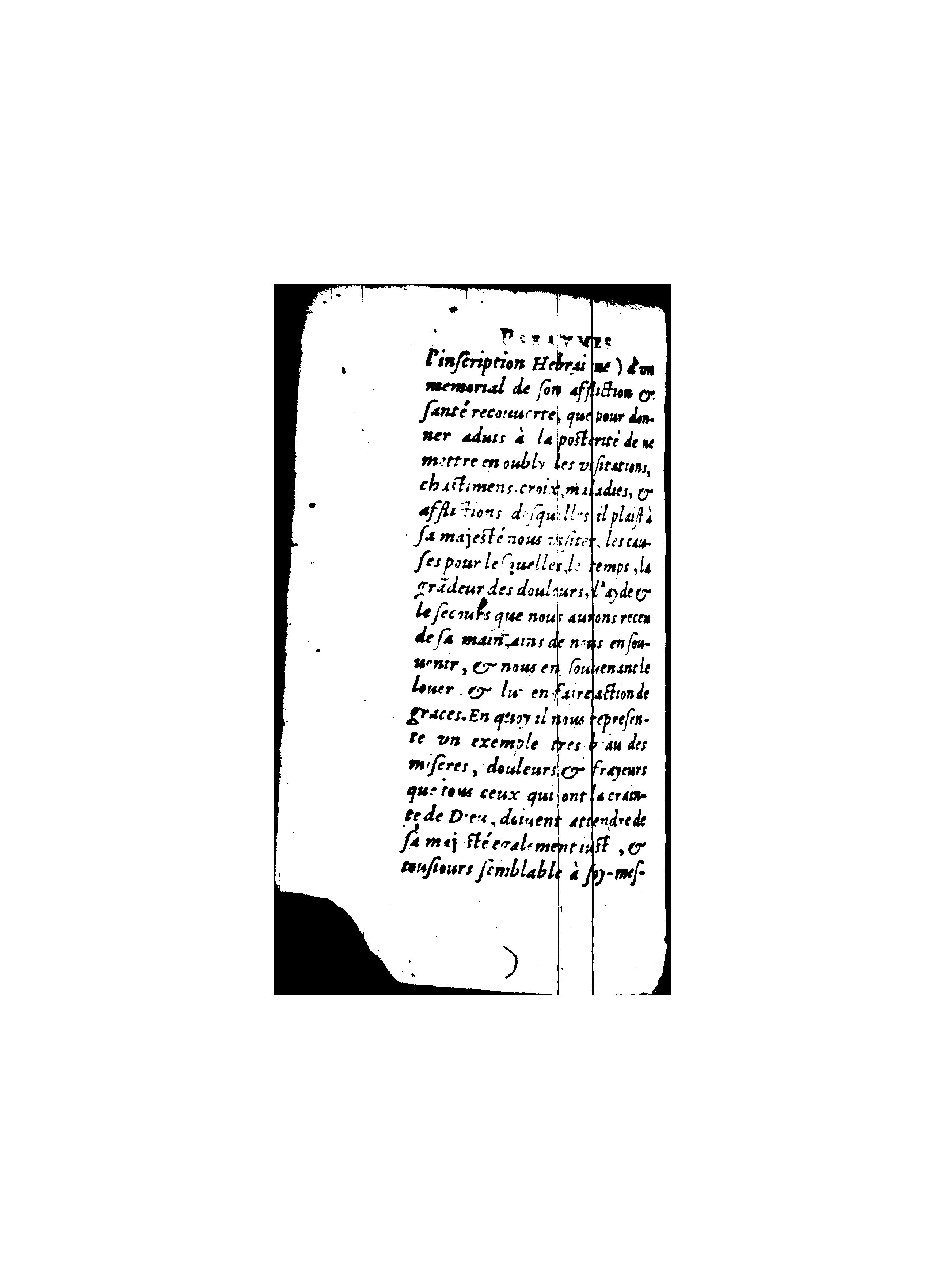 PSEAVMES
l'inſcription Hebraine) d'vn
memorial de ſon affliction &
ſanté recouuerte, que pour don-
ner aduis à la poſterité de ne
mettre en oubly les viſitations,
chaſtimens, croix, maladies, &
afflictions deſquelles il plaiſt à
ſa majeſté nous viſiter, les cau-
ſes pour leſquelles, le temps, la
grãdeur des douleurs, l'ayde &
le ſecours que nous aurons receu
de ſa main, ains de nous en ſou-
uenir, & nous en ſouuenant le
louer & luy en faire action de
graces. En quoy il nous repreſen-
te vn exemple tres beau des
miſeres, douleurs & frayeurs
que tous ceux qui ont la crain-
te de Dieu, doiuent attendre de
ſa majeſté egalement iuſte, &
touſiours ſemblable à ſoy-meſ-